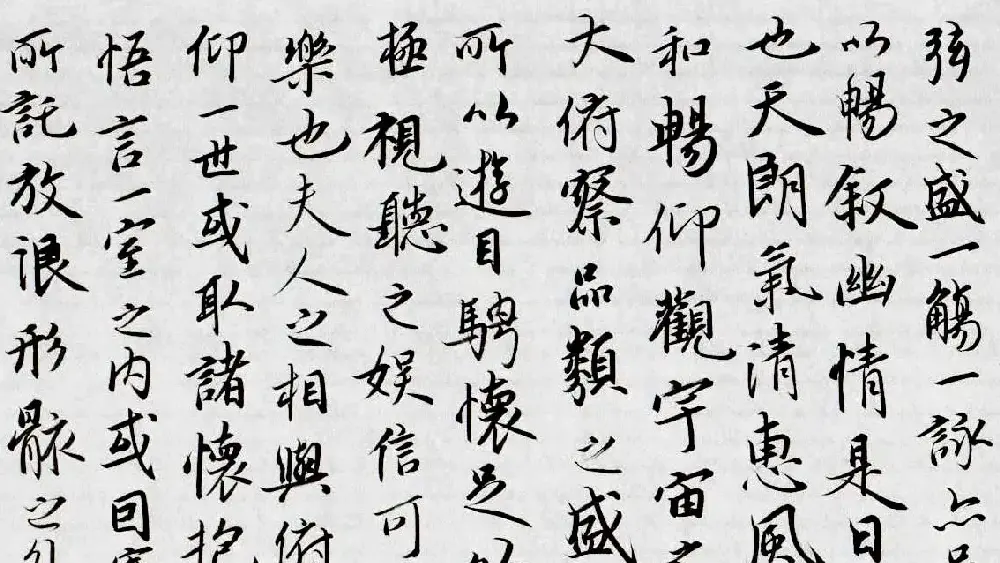 弦之盛一觴一詠亦足
以暢敘幽情是日
也天朗氣清惠風
和暢仰觀宇宙之
大俯察品類之盛
所以遊目騁懷足以
極視聽之娛信可
樂也夫人之相與俯
仰一世或取諸懷抱
悟言一室之內或因寄
所託放浪形骸之外